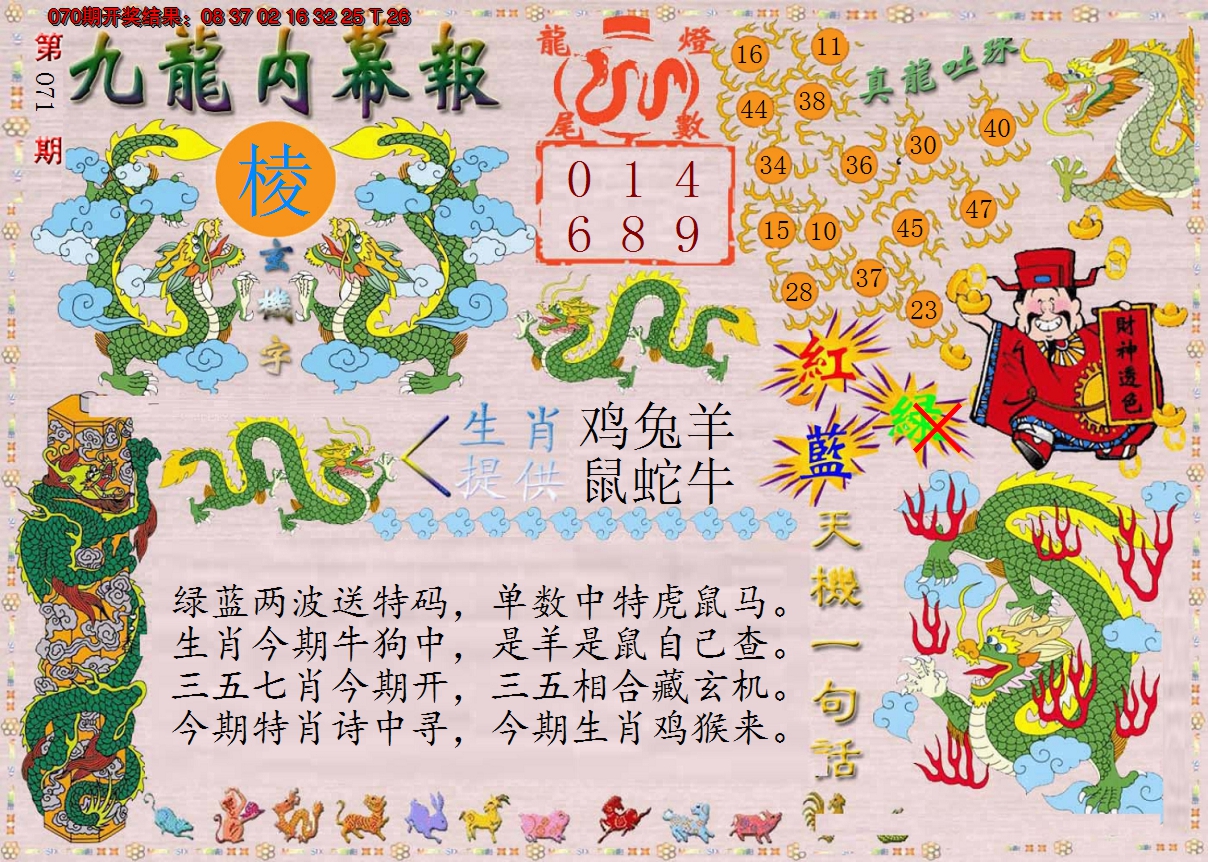 070期开奖结果：06 37 02 16 32 25 T 26
第071期
九龍内幕報
棱
玄機字
龍燈
尾數
0 1 4
6 8 9
真龍吐珠
16
11
44
38
40
30
34
36
47
15
10
45
37
28
23
財神透色
紅
綠
藍
生肖 鸡兔羊
提供 鼠蛇牛
绿蓝两波送特码，单数中特虎鼠马。
生肖今期牛狗中，是羊是鼠自己查。
三五七肖今期开，三五相合藏玄机。
今期特肖诗中寻，今期生肖鸡猴来。
天機一句话